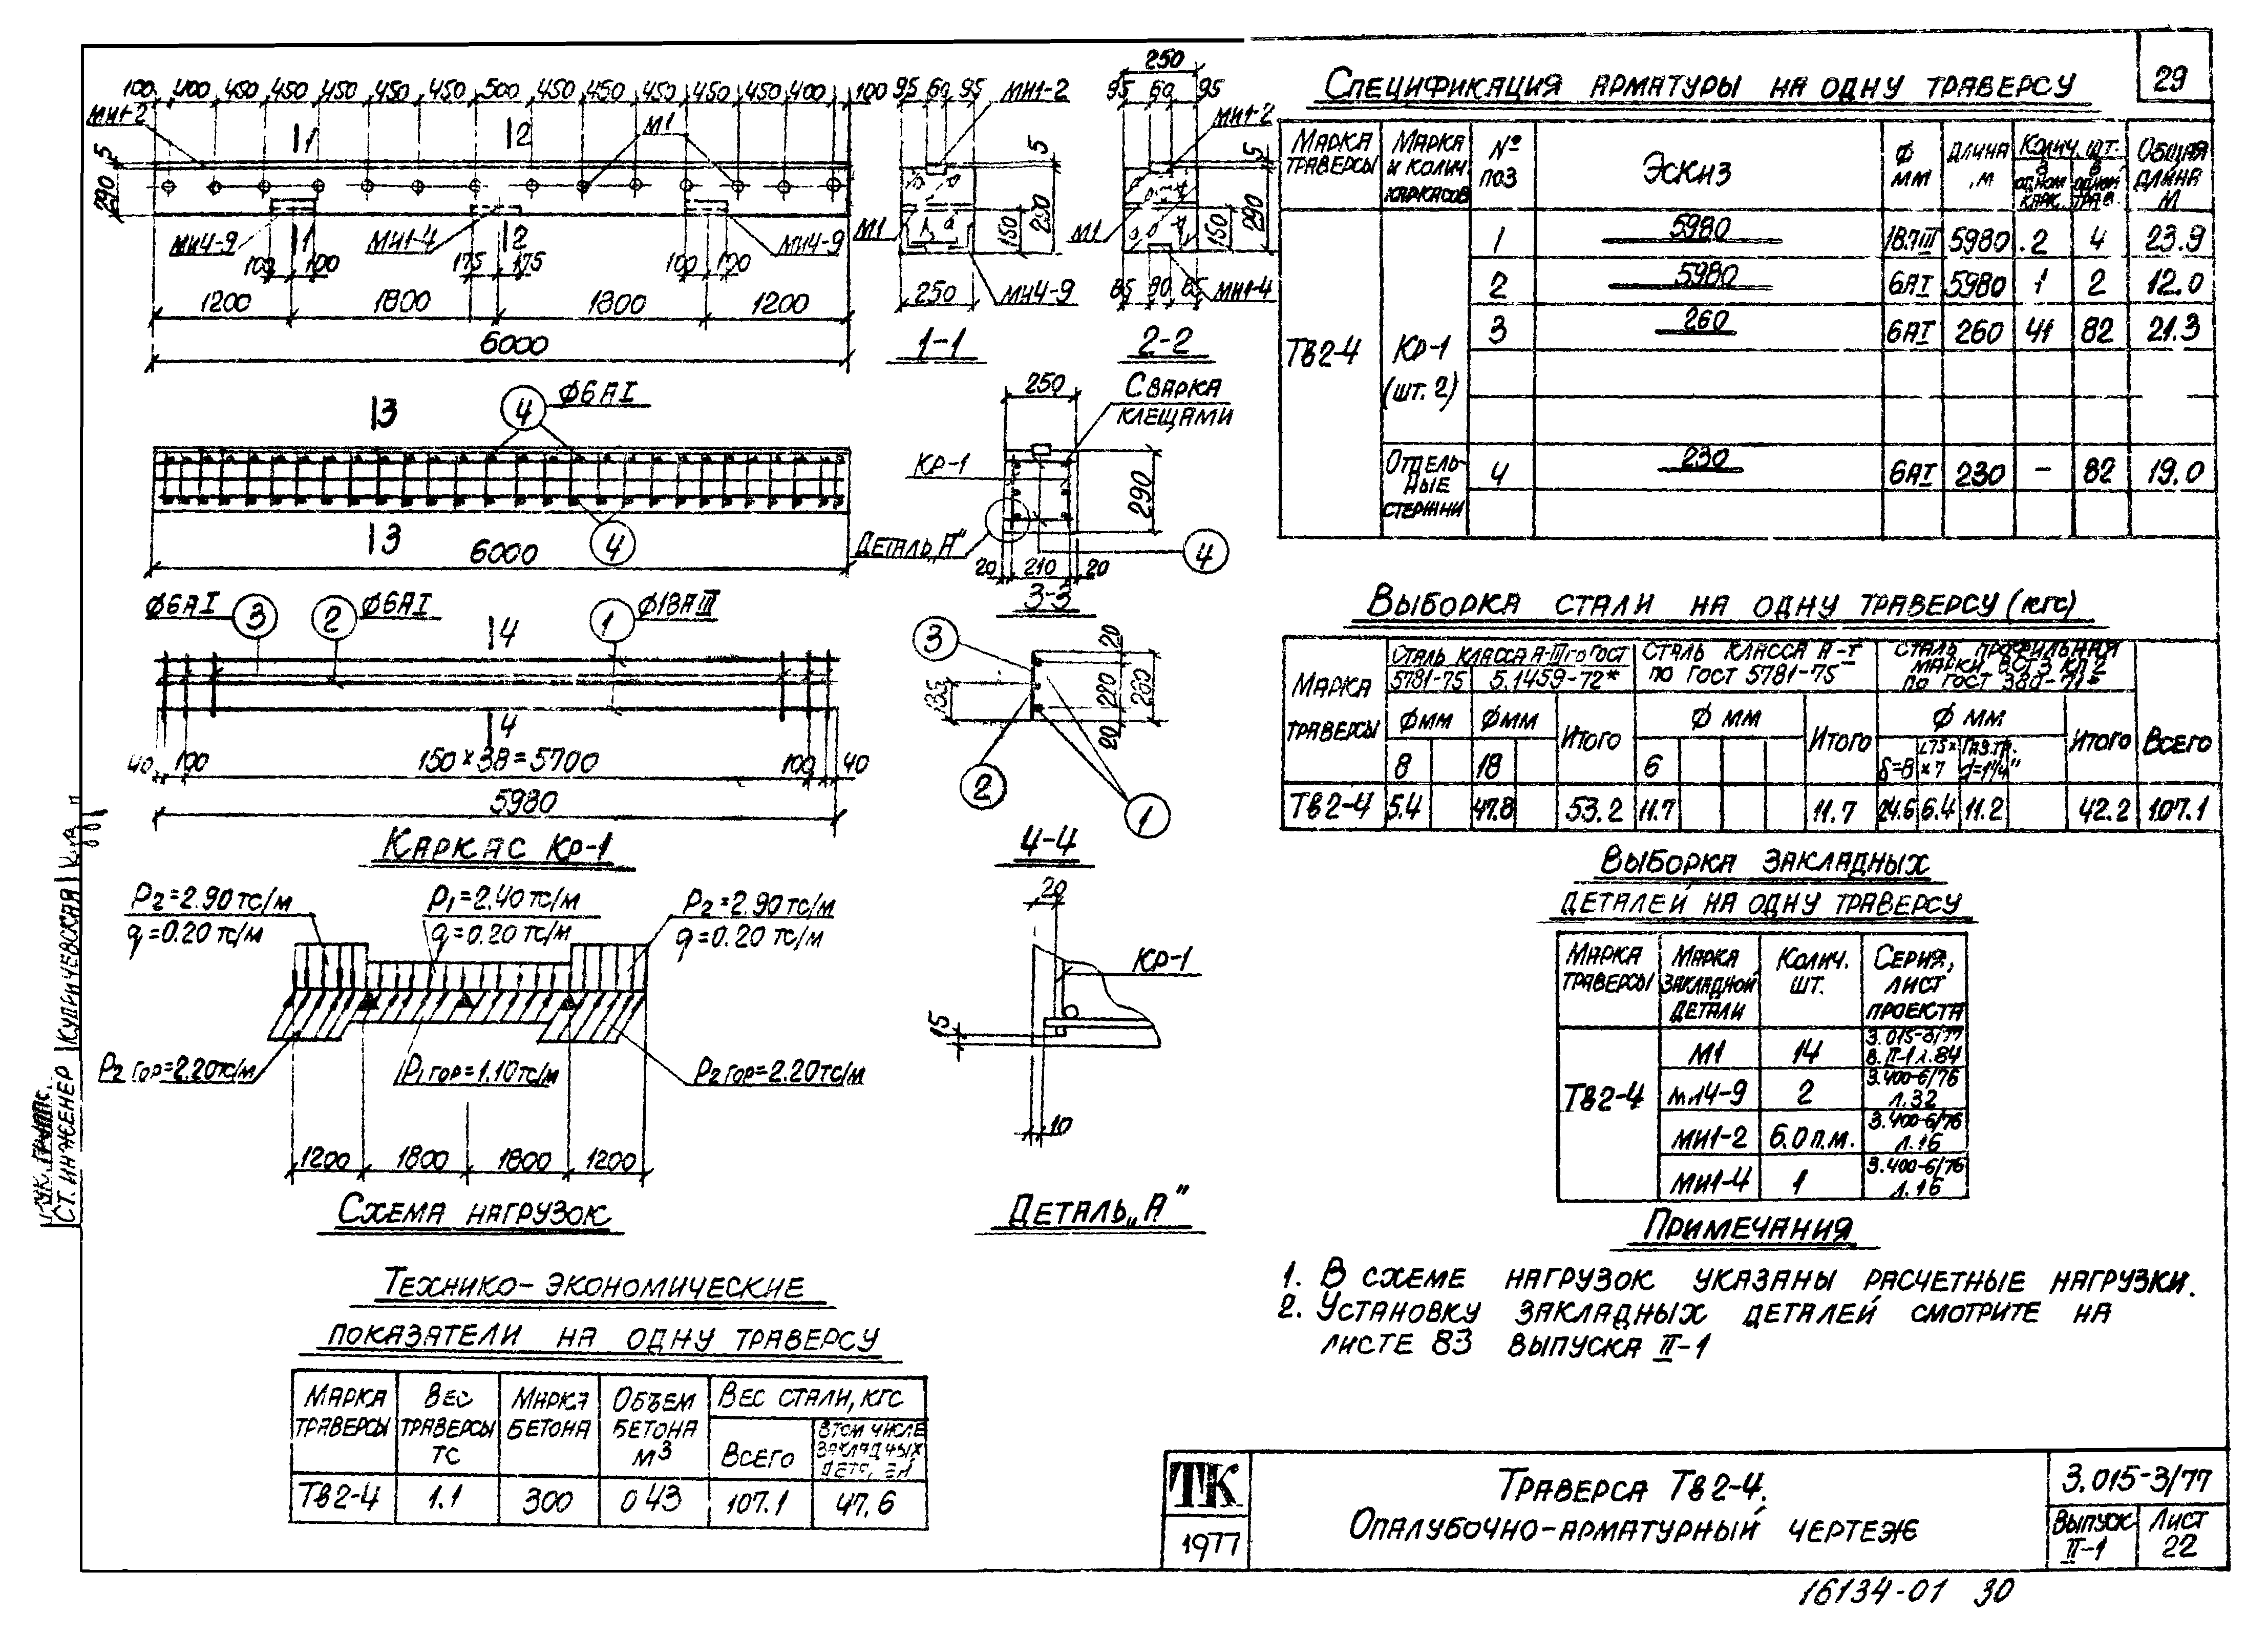 29
100 400 450 450 450 450 450 500 450 450 450 450 450 400 100
МН1-2
М1
1 2
5
290
МН4-9 1 МН1-4 2 МН4-9
100 100 175 175 100 100
1200 1800 1800 1200
6000
95 60 95
МН1-2
5
М1
150
290
МН4-9
250
1-1
250
95 60 95
МН1-2
5
М1
150
290
85 80 85
МН1-4
2-2
3
4
Ф6АI
3
4
6000
250
Сварка
клещами
КР-1
290
Деталь „А"
4
20 210 20
3-3
Ф6АI 3 2 Ф6АI 1 Ф18АIII
4
4
40 100 150×38=5700 100 40
5980
Каркас КР-1
3
20
135
220
260
20
2
1
4-4
P2=2.90 тс/м
q=0.20 тс/м
P1=2.40 тс/м
q=0.20 тс/м
P2=2.90 тс/м
q=0.20 тс/м
P2 гор=2.20тс/м
P1 гор=1.10тс/м
P2 гор=2.20тс/м
1200 1800 1800 1200
Схема нагрузок
20
КР-1
15
10
Деталь „А"
Технико-экономические
показатели на одну траверсу
Марка траверсы
Вес траверсы тс
Марка бетона
Объем бетона м3
Вес стали, кгс
Всего
В том числе закладных
Тв2-4 1.1 300 0 43 107.1 47.6
Спецификация арматуры на одну траверсу
Марка траверсы
Марка и колич. каркасов
№ поз
Эскиз
Ф мм
Длина, м
Колич. шт.
В одном карк.
В одной трав.
Общая длина м
Тв2-4
КР-1
(шт. 2)
1 5980 18АIII 5980 2 4 23.9
2 5980 6АI 5980 1 2 12.0
3 260 6АI 260 41 82 21.3
Отдельные стержни
4 230 6АI 230 - 82 19.0
Выборка стали на одну траверсу (кгс)
Марка траверсы
Сталь класса А-III по ГОСТ
5781-75 5.1459-72*
Сталь класса А-I
по ГОСТ 5781-75
Сталь профильная
марки ВСТ3 КП2
по ГОСТ 380-71*
Всего
Фмм Фмм Итого Ф мм Итого Ф мм Итого
8 18 6 δ=8 L75××7 Газ.тр. d=1¼"
Тв2-4 5.4 47.8 53.2 11.7 11.7 24.6 6.4 11.2 42.2 107.1
Выборка закладных
деталей на одну траверсу
Марка траверсы
Марка закладной детали
Колич. шт.
Серия, лист проекта
Тв2-4
М1 14 3.015-3/77 В.II-1 л.84
МН4-9 2 3.400-6/76 л.32
МН1-2 6.0 п.м. 3.400-6/76 л.16
МН1-4 1 3.400-6/76 л.16
Примечания
1. В схеме нагрузок указаны расчетные нагрузки.
2. Установку закладных деталей смотрите на
листе 83 выпуска II-1
ТК
1977
Траверса Тв2-4.
Опалубочно-арматурный чертеж
3.015-3/77
Выпуск II-1
Лист 22
16134-01 30
Ст. инженер Кульчевская